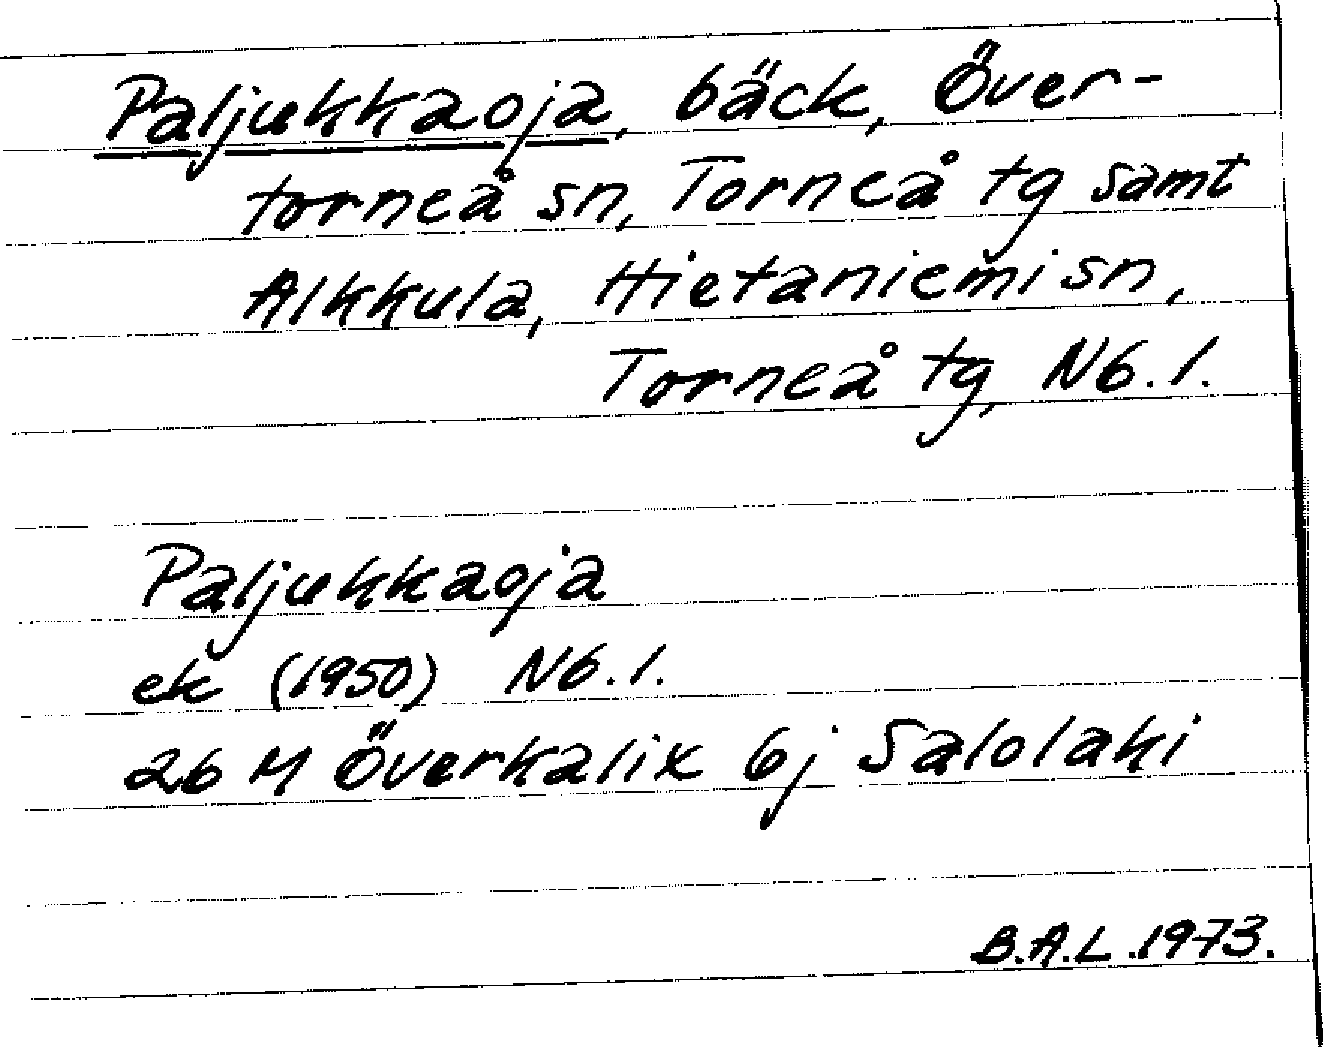 Paljukkaoja, bäck, Över-
torneå sn, Torneå tg samt
Alkkula, Hietaniemi sn,
Torneå tg, Nb. l.
Paljukkaoja
ek (1950) Nb. l.
26 M Överkalix 6j Salolaki
B.A.L. 1973.